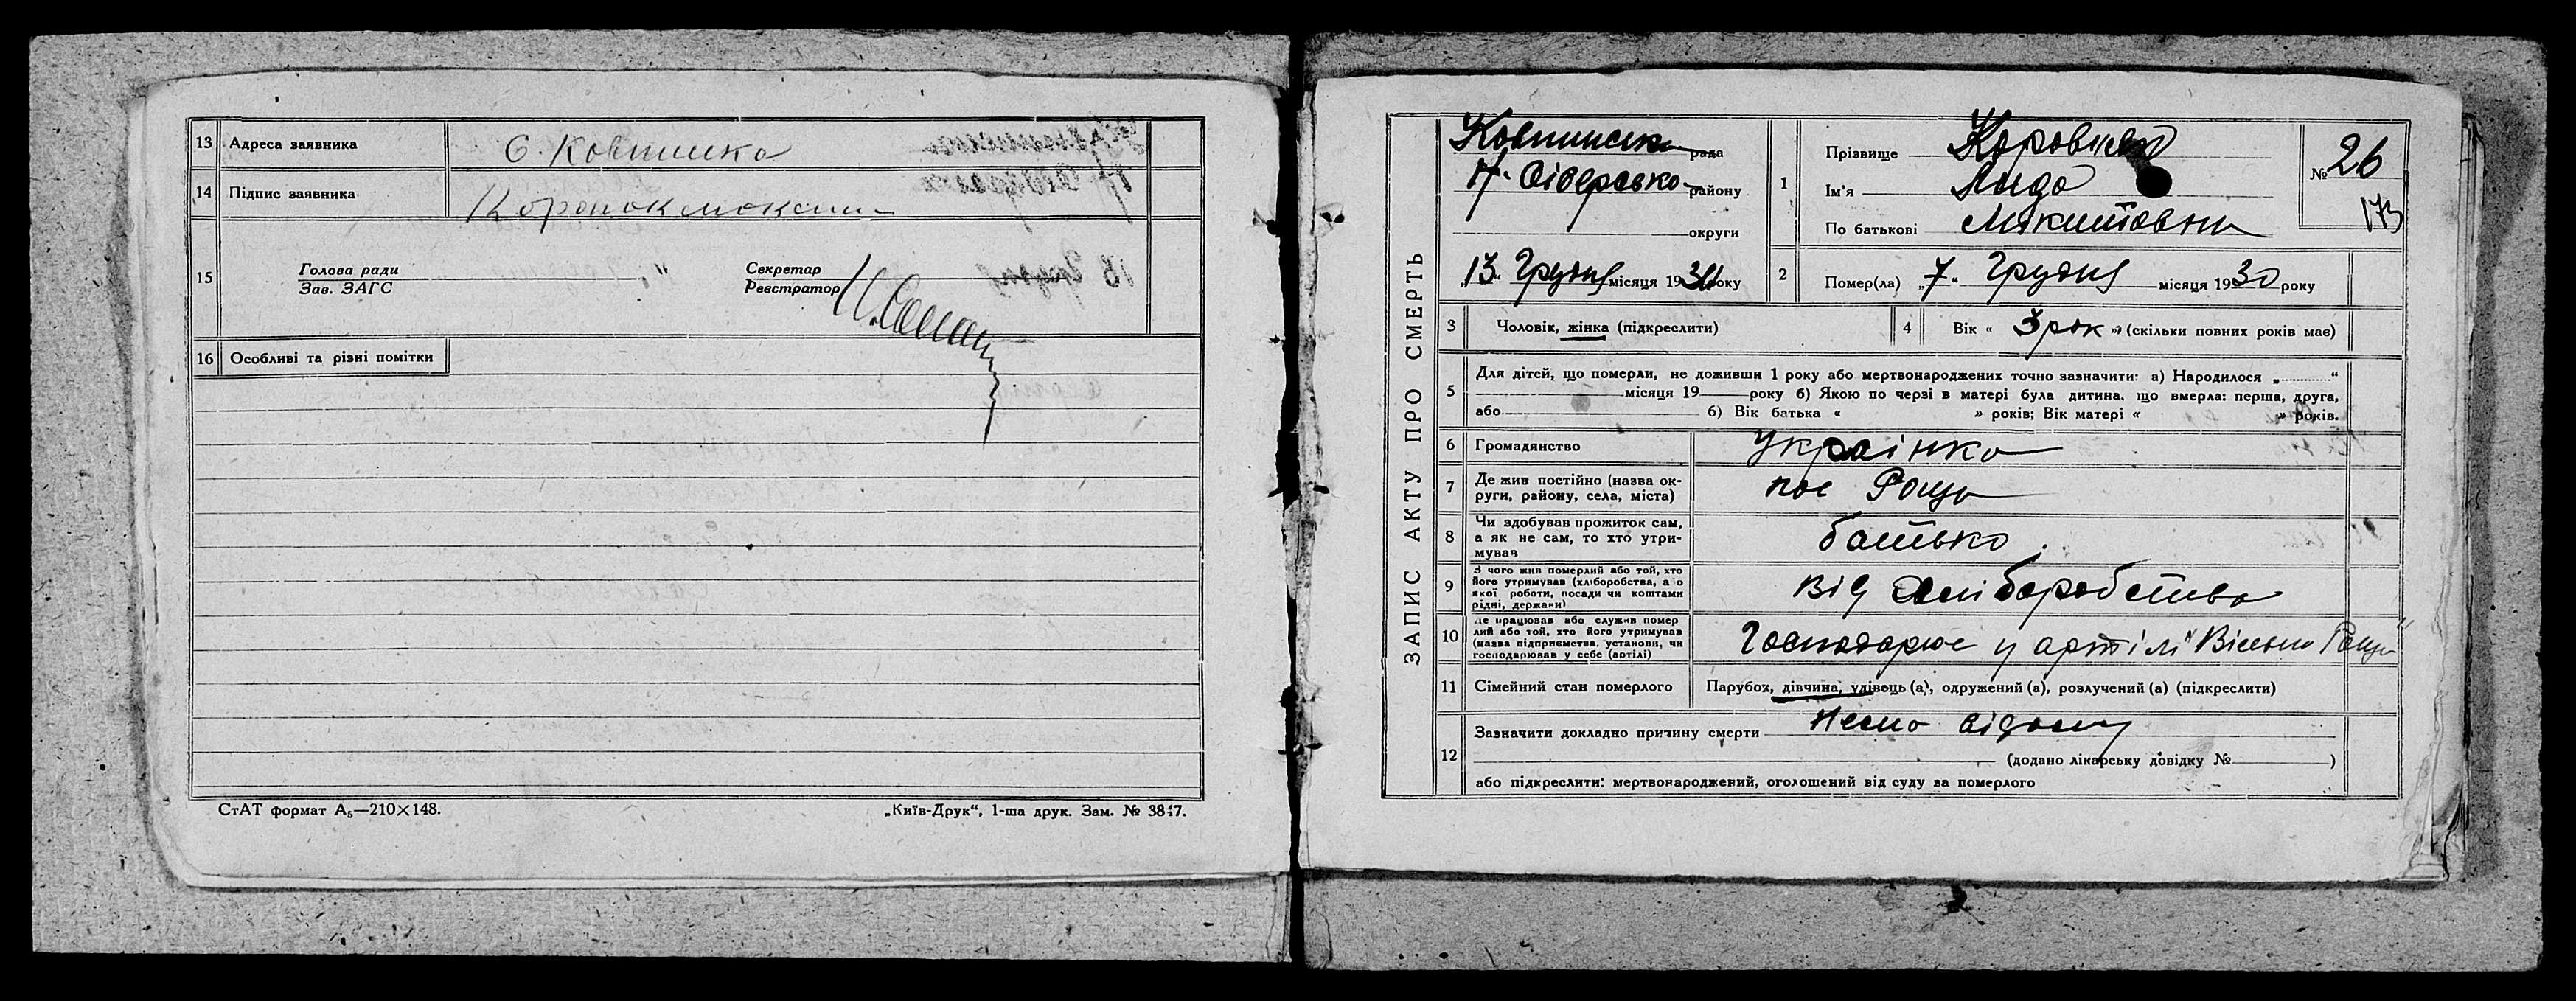 13 Адреса заявника С. Ковтинка
14 Підпис заявника Коропок
15 Голова ради
Зав. ЗАГС
Секретар
Реєстратор
16 Особливі та різні помітки
СтАТ формат А₅—210×148.
„Київ-Друк“, 1-ша друк. Зам. № 3847.
ЗАПИС АКТУ ПРО СМЕРТЬ
Ковтинська рада
Н. Сіверсько району
округи
„13“ Грудня місяця 1930 року
1 Прізвище
Ім'я Лида
По батькові Микитовна
№ 26
173
2 Помер(ла) „7“ Грудня місяця 1930 року
3 Чоловік, жінка (підкреслити)
4 Вік « 3 рок » (скільки повних років мав)
5 Для дітей, що померли, не доживши 1 року або мертвонароджених точно зазначити: а) Народилося „ “
місяця 19 року б) Якою по черзі в матері була дитина, що вмерла: перша, друга,
або б) Вік батька « » років; Вік матері « » років.
6 Громадянство Українка
7 Де жив постійно (назва ок-
руги, району, села, міста) пос Роща
8 Чи здобував прожиток сам,
а як не сам, то хто утри-
мував батько
9 З чого жив померлий або той, хто
його утримував (хліборобства, а о
якої роботи, посади чи коштами
рідні, держави) від хліборобства
10 Де працював або служив помер
лий або той, хто його утримував
(назва підприємства, установи, чи
господарював у себе (артілі) Господарює у артілі "Вільна Роща"
11 Сімейний стан померлого Парубок, дівчина, удівець (а), одружений (а), розлучений (а) (підкреслити)
12 Зазначити докладно причину смерти
(додано лікарську довідку № )
або підкреслити: мертвонароджений, оголошений від суду за померлого